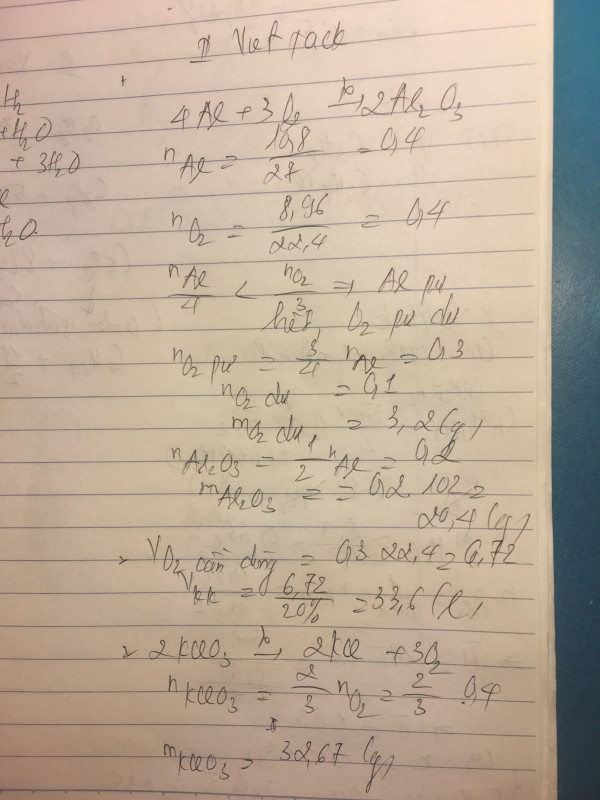 H2
+H2O
+ 3H2O
H2O
4Al + 3O2 t°→ 2Al2O3
nAl = 10,8/27 = 0,4
nO2 = 8,96/22,4 = 0,4
nAl/4 < nO2/3 => Al pư
hết, O2 pư dư
nO2 pư = 3/4 nAl = 0,3
nO2 dư = 0,1
mO2 dư = 3,2 (g)
nAl2O3 = 1/2 nAl = 0,2
mAl2O3 = = 0,2.102 =
20,4 (g)
VO2 cần dùng = 0,3.22,4 = 6,72
Vkk = 6,72/20% = 33,6 (l)
2KClO3 t°→ 2KCl + 3O2
nKClO3 = 2/3 nO2 = 2/3 . 0,4
mKClO3 = 32,67 (g)